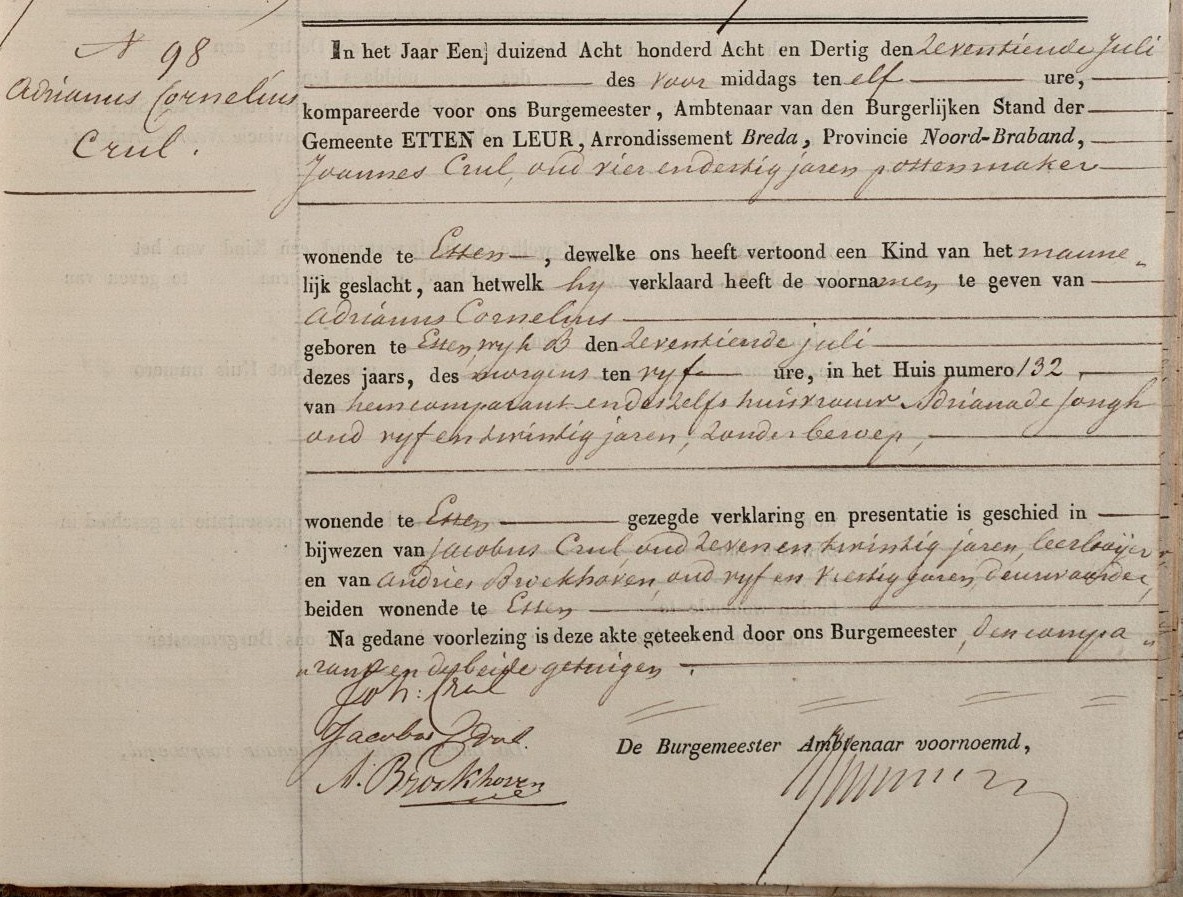 N 98
Adrianus Cornelius
Crul.
In het Jaar Een duizend Acht honderd Acht en Dertig den zeventiende Juli
des voor middags ten elf ure,
kompareerde voor ons Burgemeester, Ambtenaar van den Burgerlijken Stand der
Gemeente ETTEN en LEUR, Arrondissement Breda, Provincie Noord-Braband,
Joannes Crul, oud vier en dertig jaren pottenmaker
wonende te Etten, dewelke ons heeft vertoond een Kind van het manne„
lijk geslacht, aan hetwelk hy verklaard heeft de voornamen te geven van
Adrianus Cornelius
geboren te Etten wyk B den zeventiende juli
dezes jaars, des morgens ten vyf ure, in het Huis numero 132,
van hem comparant en deszelfs huisvrouw Adriana de Jongh
oud vyf en twintig jaren, zonder beroep,
wonende te Etten gezegde verklaring en presentatie is geschied in
bijwezen van Jacobus Crul oud zeven en twintig jaren, leerlooijer
en van Andries Broekhoven, oud vyf en veertig jaren, deurwaarder,
beiden wonende te Etten
Na gedane voorlezing is deze akte geteekend door ons Burgemeester, den compa„
„rant en de beide getuigen.
Joh: Crul
Jacobus Crul.
A. Broekhoven
De Burgemeester Ambtenaar voornoemd,